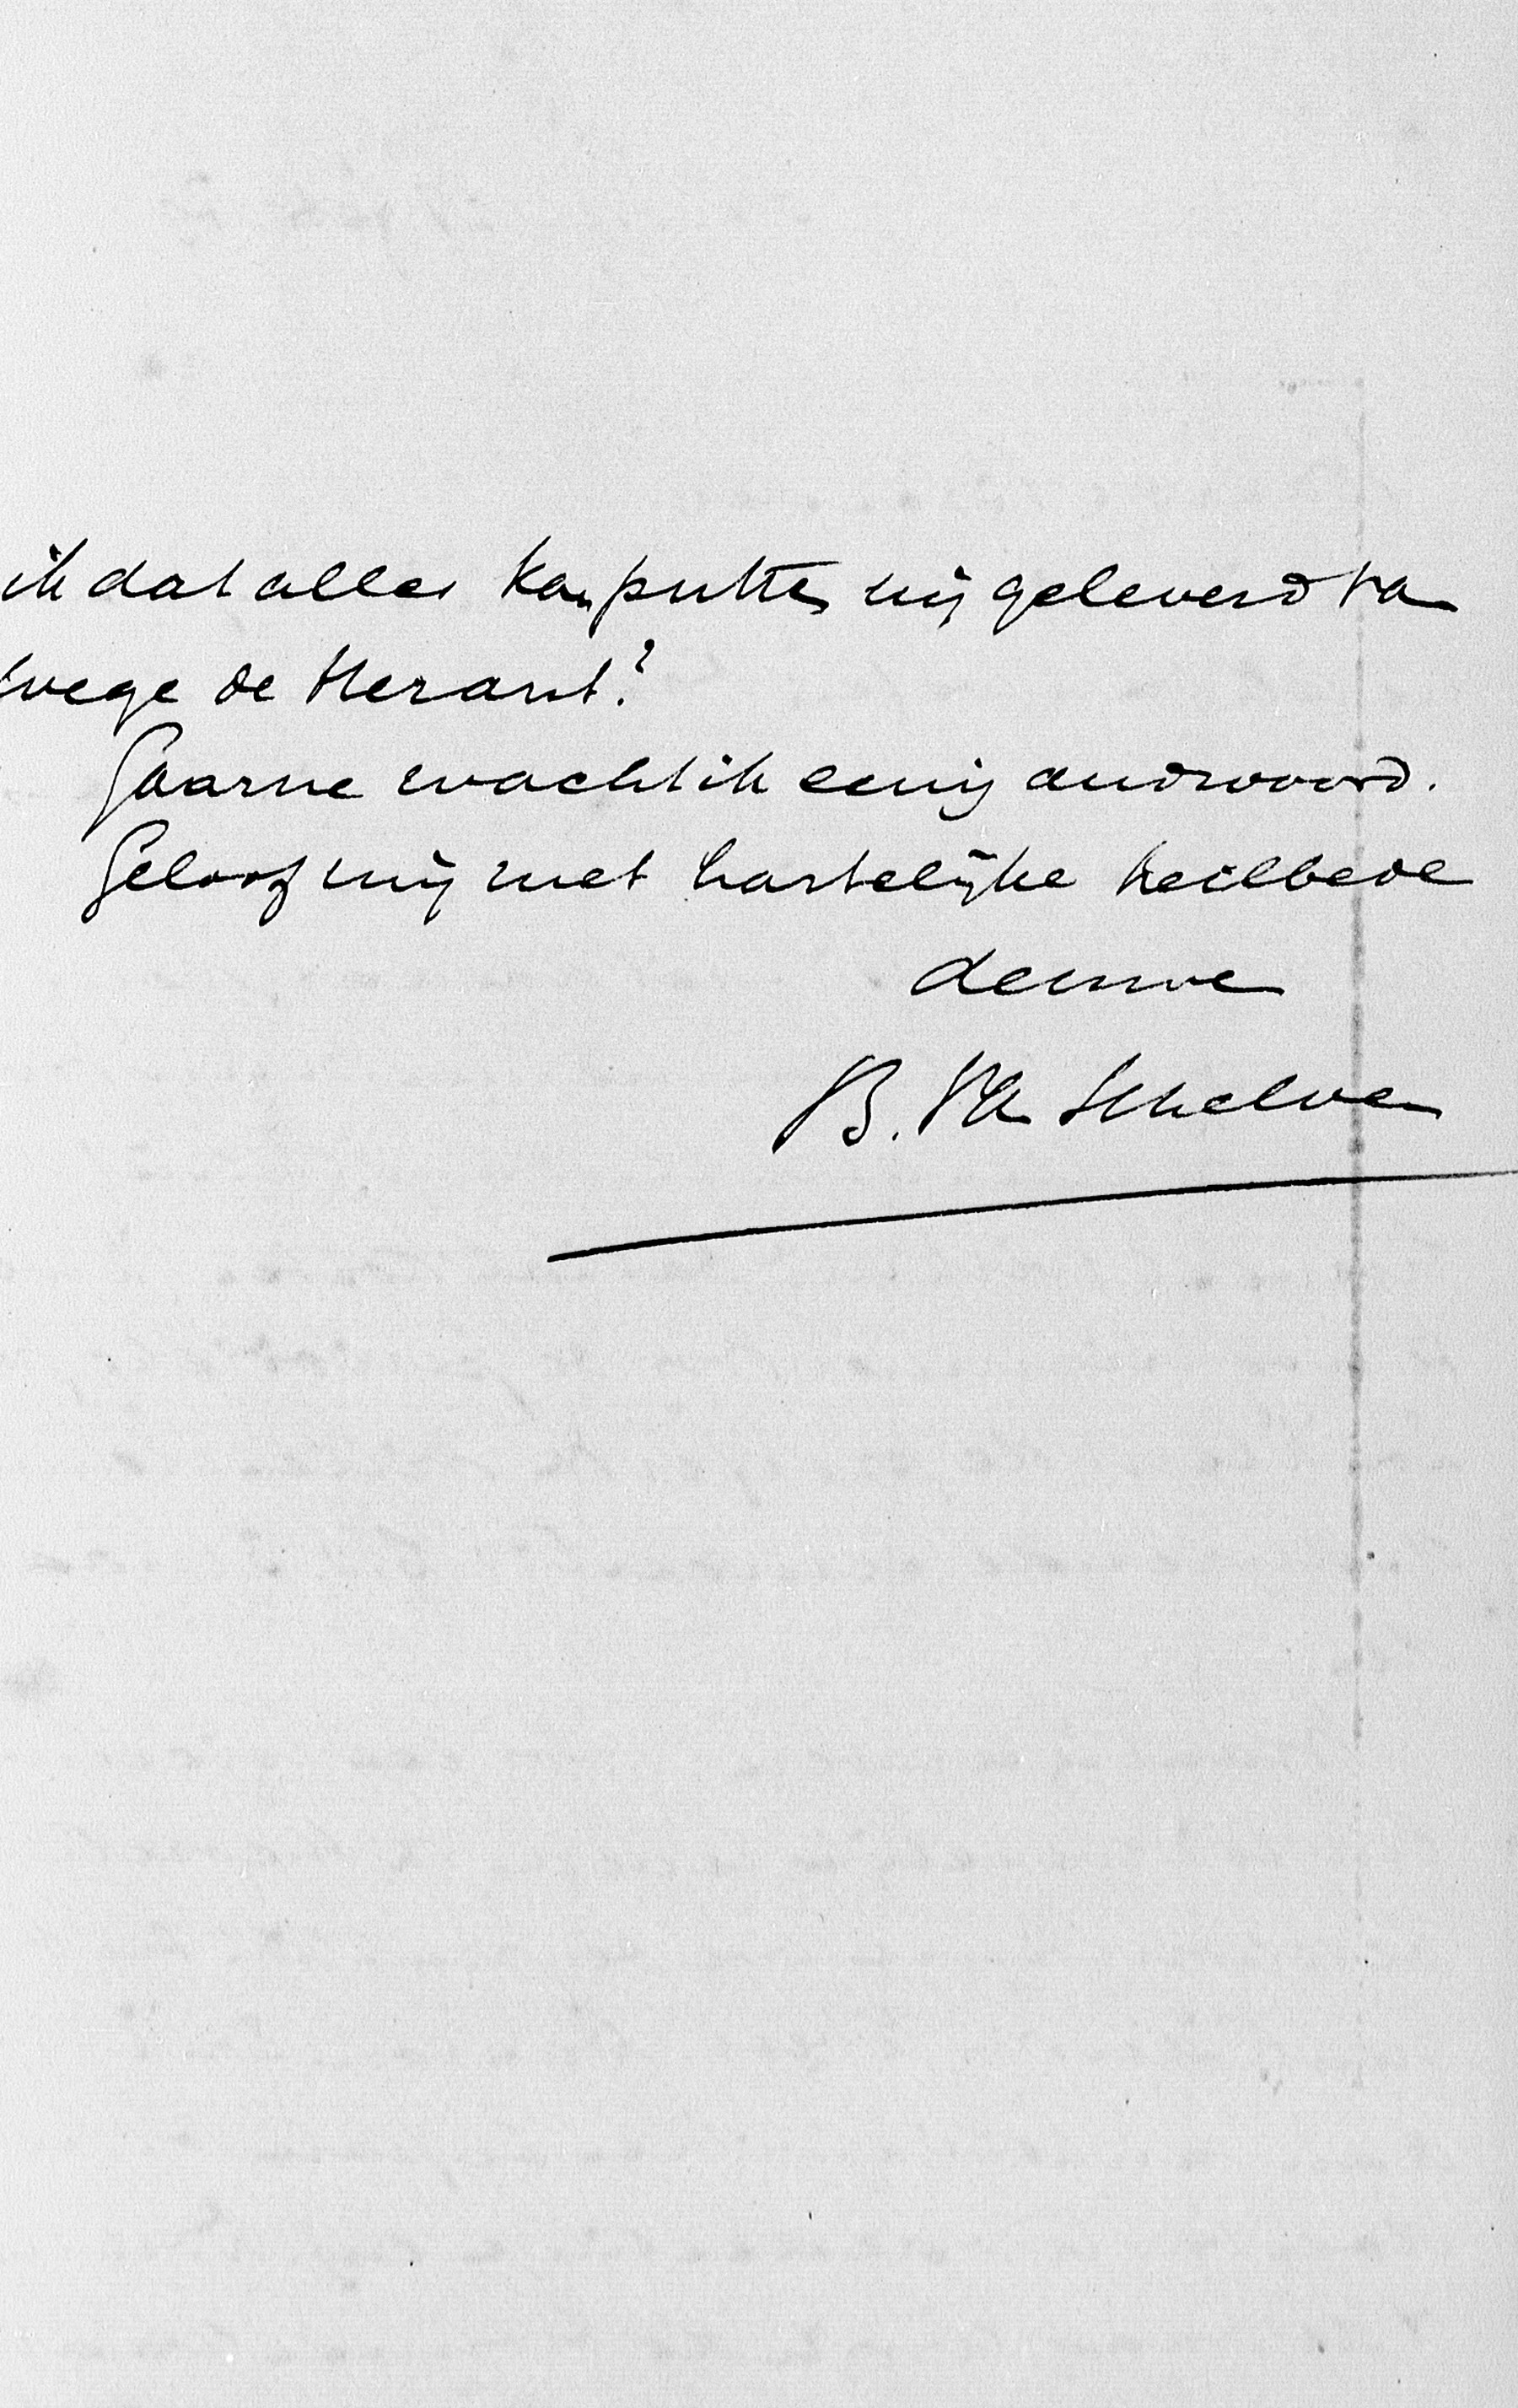 ik dat alles kan putten mij geleverd van
wege de Heraut?
Gaarne wacht ik eenig andwoord.
Geloof mij met hartelijke heilbede
de uwe
B. Van Schelven